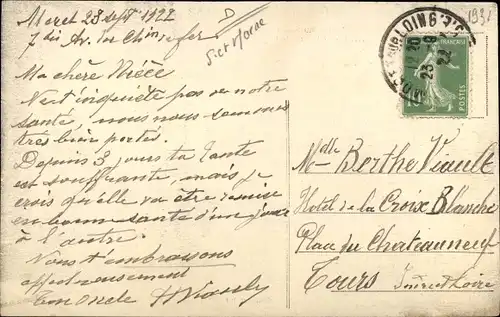 Moret 23 sept 1922
7 bis Av. du Chin de fer
D
S. et Marne
Ma chère Nièce
Ne t'inquiète pas de notre
santé, nous nous sommes
très bien portés.
Depuis 3 jours ta Tante
est souffrante, mais je
crois qu'elle va être remise
en bonne santé d'un jour
à l'autre.
Nous t'embrassons
affectueusement
Ton oncle
MORET SUR LOING
23 9
22
POSTES
Mlle Berthe Viault
Hotel de la Croix Blanche
Place du Chateauneuf
Tours Indre et Loire